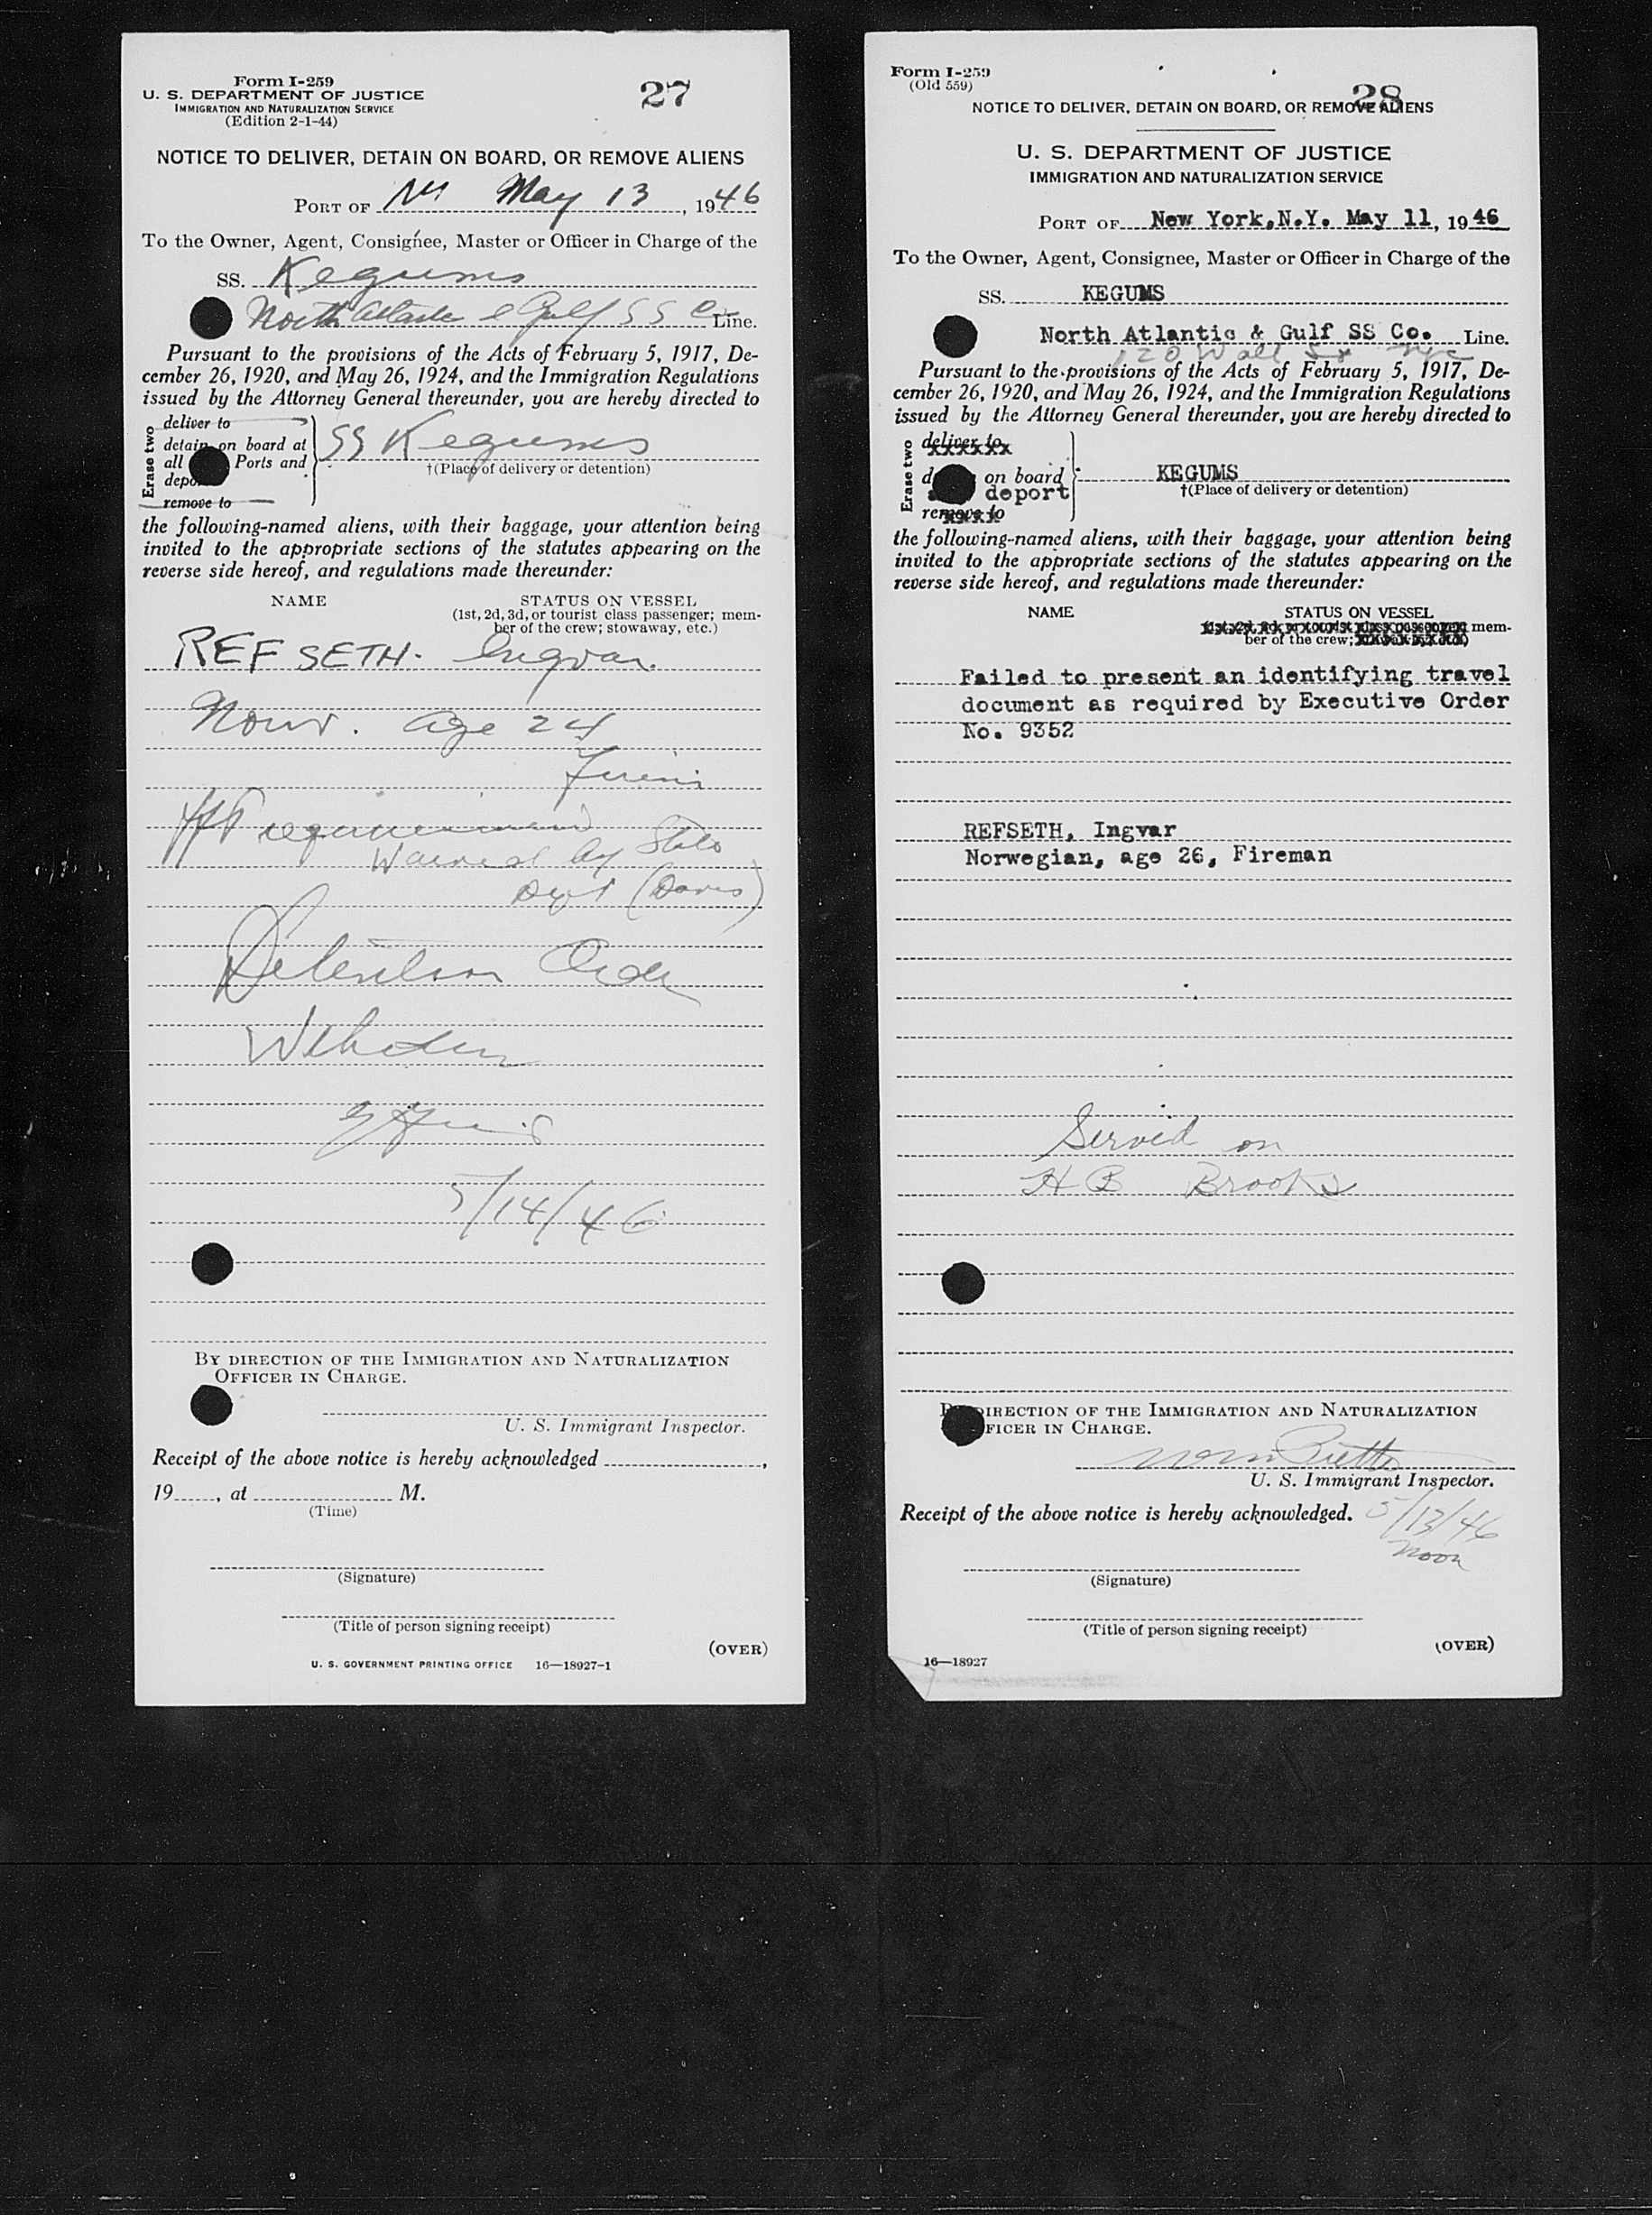 Form I-259
U. S. DEPARTMENT OF JUSTICE
IMMIGRATION AND NATURALIZATION SERVICE
(Edition 2-1-44)
27
NOTICE TO DELIVER, DETAIN ON BOARD, OR REMOVE ALIENS
PORT OF NY May 13, 1946
To the Owner, Agent, Consignee, Master or Officer in Charge of the
SS. Kegums
North Atlantic & Gulf SS Co Line.
Pursuant to the provisions of the Acts of February 5, 1917, De-
cember 26, 1920, and May 26, 1924, and the Immigration Regulations
issued by the Attorney General thereunder, you are hereby directed to
Erase two
deliver to
detain on board at
all Ports and
remove to
SS Kegums
†(Place of delivery or detention)
the following-named aliens, with their baggage, your attention being
invited to the appropriate sections of the statutes appearing on the
reverse side hereof, and regulations made thereunder:
NAME
STATUS ON VESSEL
(1st, 2d, 3d, or tourist class passenger; mem-
ber of the crew; stowaway, etc.)
REFSETH. Ingvar.
age 24
PPT requirement
Waived by State
Dept (Davis)
Detention Order
5/14/46
BY DIRECTION OF THE IMMIGRATION AND NATURALIZATION
OFFICER IN CHARGE.
U. S. Immigrant Inspector.
Receipt of the above notice is hereby acknowledged ,
19 , at M.
(Time)
(Signature)
(Title of person signing receipt)
(OVER)
U. S. GOVERNMENT PRINTING OFFICE 16—18927-1
Form I-259
(Old 559)
28
NOTICE TO DELIVER, DETAIN ON BOARD, OR REMOVE ALIENS
U. S. DEPARTMENT OF JUSTICE
IMMIGRATION AND NATURALIZATION SERVICE
PORT OF New York,N.Y. May 11, 1946
To the Owner, Agent, Consignee, Master or Officer in Charge of the
SS. KEGUMS
North Atlantic & Gulf SS Co. Line.
120 Wall St NYC
Pursuant to the provisions of the Acts of February 5, 1917, De-
cember 26, 1920, and May 26, 1924, and the Immigration Regulations
issued by the Attorney General thereunder, you are hereby directed to
Erase two
deliver to
on board
deport
remove to
KEGUMS
†(Place of delivery or detention)
the following-named aliens, with their baggage, your attention being
invited to the appropriate sections of the statutes appearing on the
reverse side hereof, and regulations made thereunder:
NAME
STATUS ON VESSEL
mem-
ber of the crew;
Failed to present an identifying travel
document as required by Executive Order
No. 9352
REFSETH, Ingvar
Norwegian, age 26, Fireman
Served on
H B Brooks
DIRECTION OF THE IMMIGRATION AND NATURALIZATION
FICER IN CHARGE.
U. S. Immigrant Inspector.
Receipt of the above notice is hereby acknowledged. 5/13/46
noon
(Signature)
(Title of person signing receipt)
(OVER)
16—18927